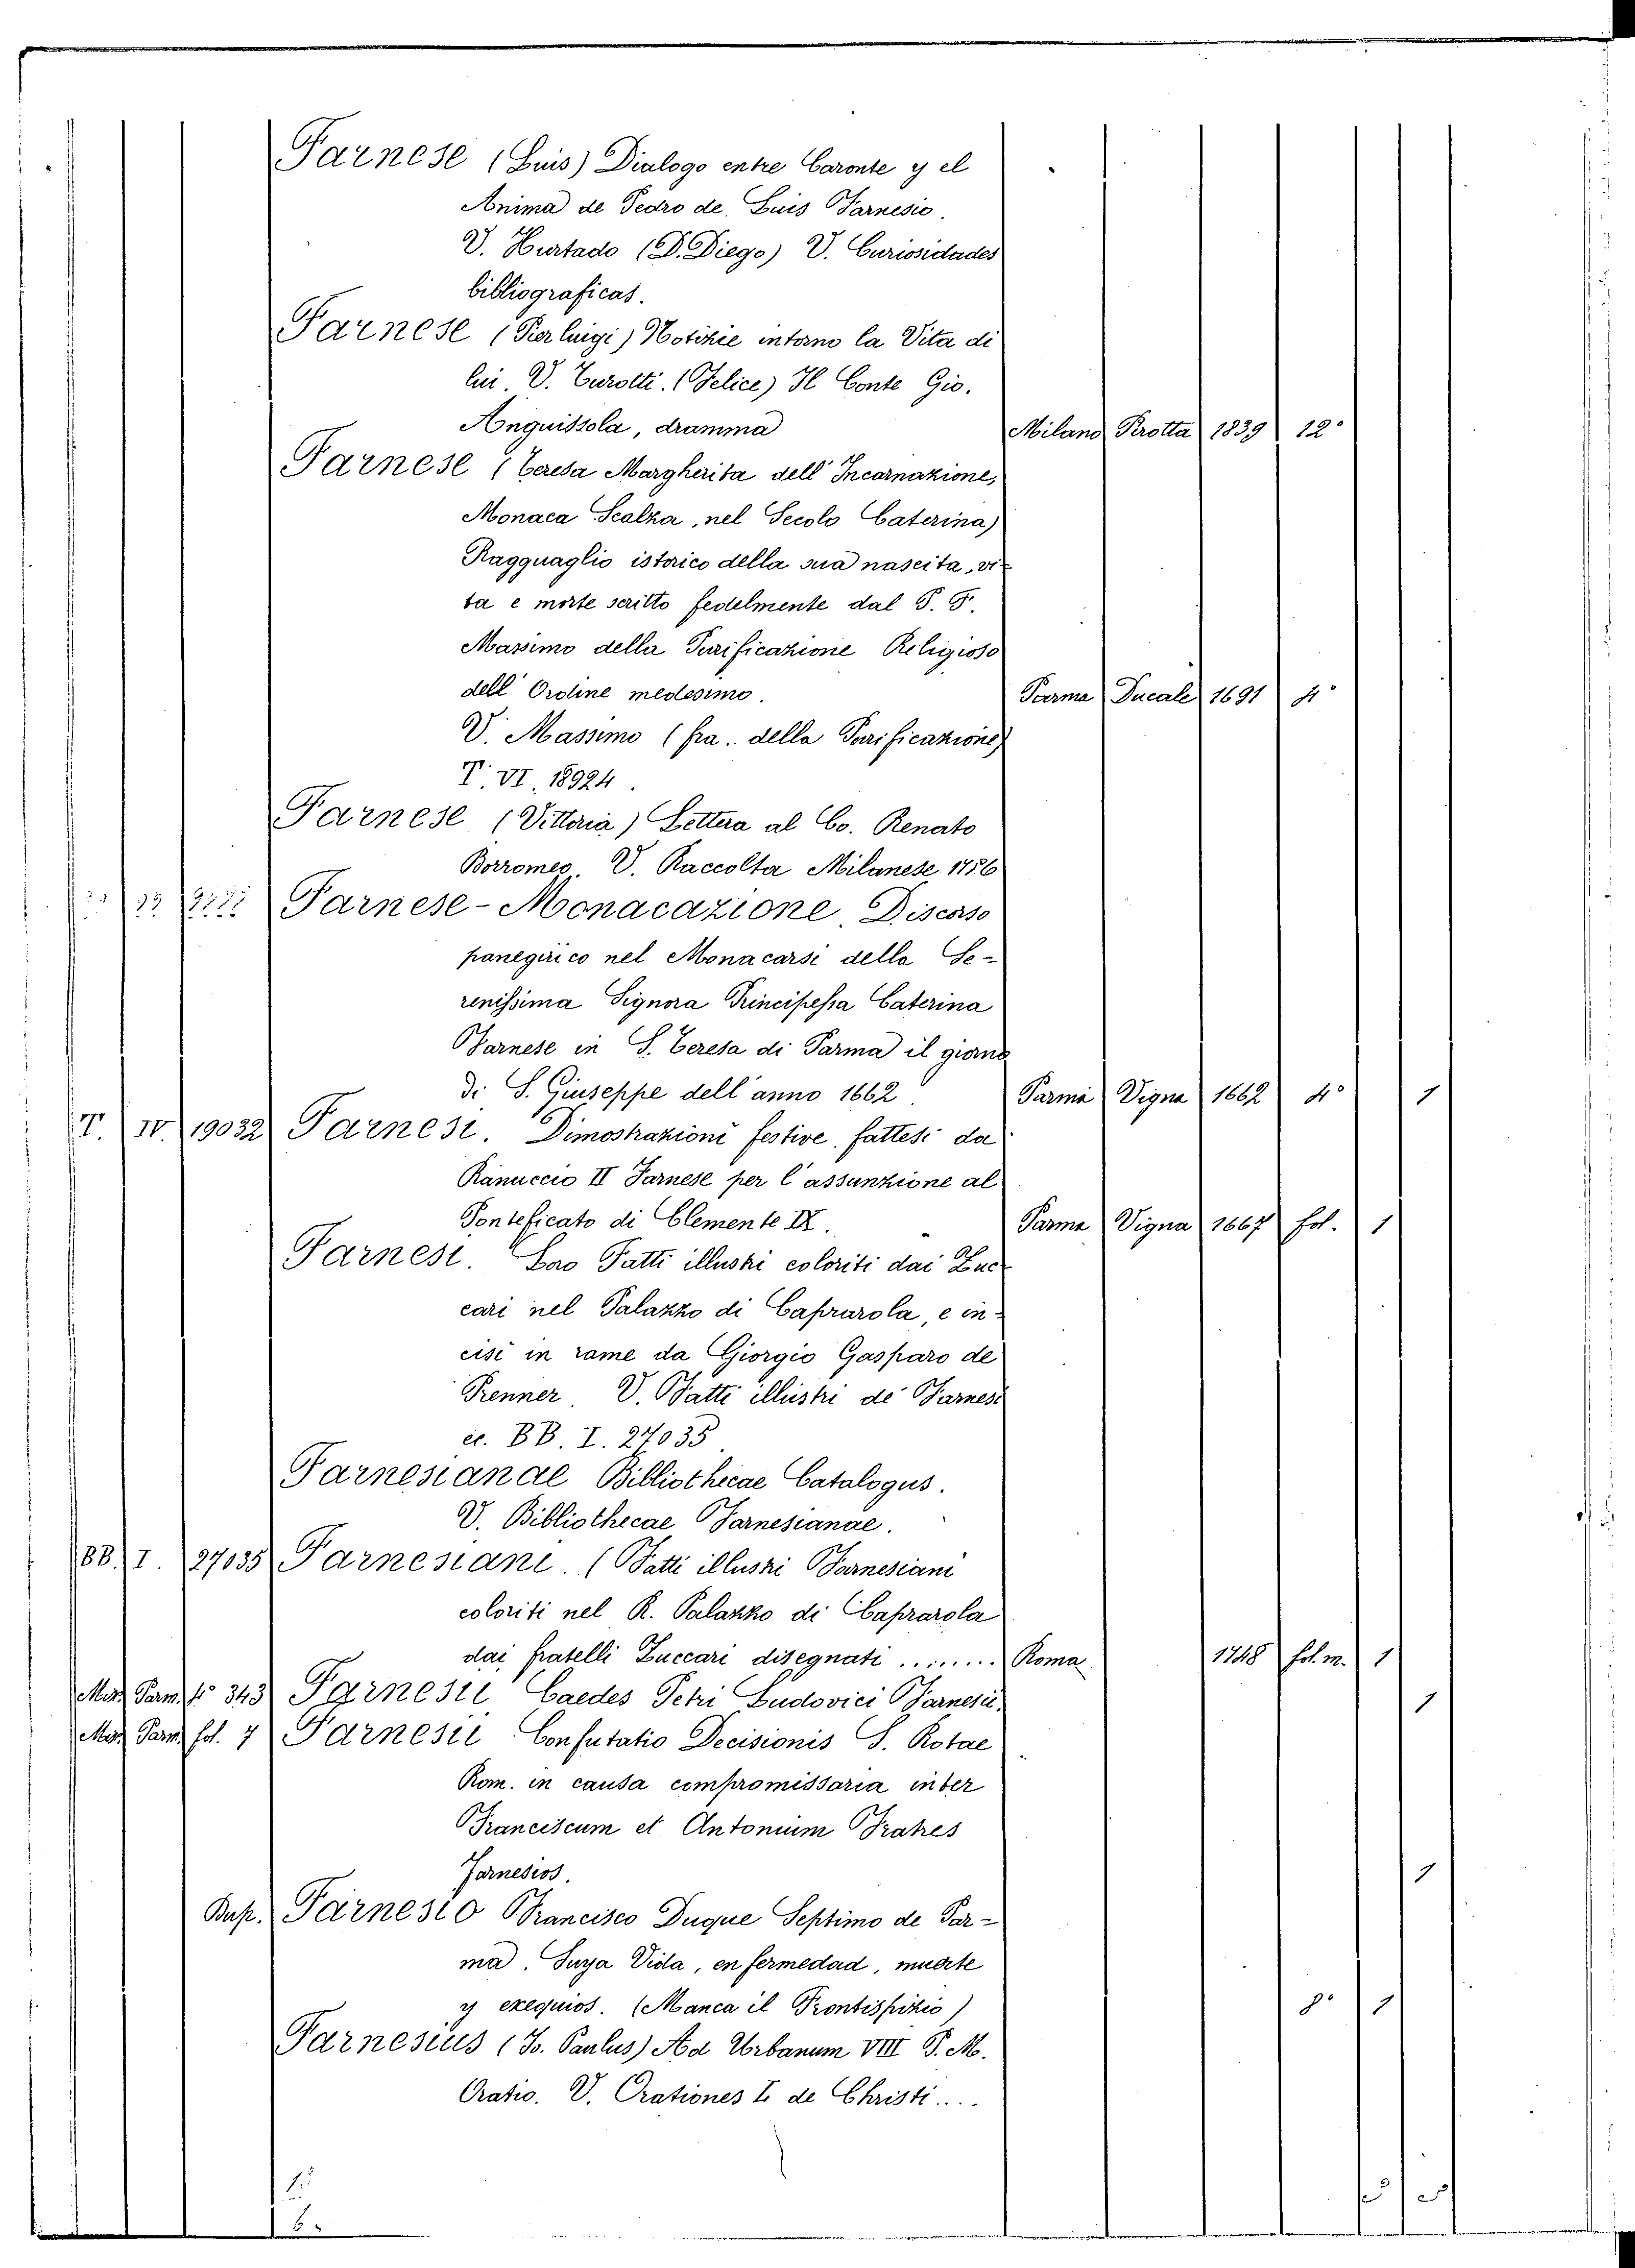 Farnese (Luis) Dialogo entre Caronte y el
Anima de Pedro de Luis Farnesio.
V. Hurtado (D. Diego) V. Curiosidades
bibliograficas.
Farnese (Pier luigi) Notizie intorno la Vita di
lui. V. Turotti. (Felice) Il Conte Gio.
Anguissola, dramma Milano Pirotta 1839 12°
Farnese (Teresa Margherita dell' Incarnazione,
Monaca Scalza, nel Secolo Caterina)
Ragguaglio istorico della sua nascita, vi-
ta e morte scritto fedelmente dal P. F.
Massimo della Purificazione Religioso
dell' Ordine medesimo. Parma Ducale 1691 4°
V. Massimo (fra.. della Purificazione)
T. VI. 18924.
Farnese (Vittoria) Lettera al Co. Renato
Borromeo. V. Raccolta Milanese 1756
Farnese-Monacazione. Discorso
panegirico nel Monacarsi della Se-
renissima Signora Principessa Caterina
Farnese in S. Teresa di Parma il giorno
di S. Giuseppe dell' anno 1662. Parma Vigna 1662 4° 1
T. IV. 19032 Farnesi. Dimostrazioni festive fattesi da
Ranuccio II Farnese per l'assunzione al
Ponteficato di Clemente IX. Parma Vigna 1667 fol. 1
Farnesi. Loro Fatti illustri coloriti dai Zuc-
cari nel Palazzo di Caprarola, e in-
cisi in rame da Giorgio Gasparo de
Prenner. V. Fatti illustri de' Farnesi
ec. BB. I. 27035
Farnesianae Bibliothecae Catalogus.
V. Bibliothecae Farnesianae.
BB. I. 27035 Farnesiani. (Fatti illustri Farnesiani
coloriti nel R. Palazzo di Caprarola
dai fratelli Zuccari disegnati ....... Roma 1748 fol. m. 1
Parm. 343 Farnesii Caedes Petri Ludovici Farnesii. 1
Parm. fol. 7 Farnesii Confutatio Decisionis S. Rotae
Rom. in causa compromissaria inter
Franciscum et Antonium Fratres
Farnesios. 1
Dup. Farnesio Francisco Duque Septimo de Par-
ma. Suya Vida, enfermedad, muerte
y exequios. (Manca il Frontispizio) 8° 1
Farnesius (Jo. Paulus) Ad Urbanum VIII P. M.
Oratio. V. Orationes L de Christi....